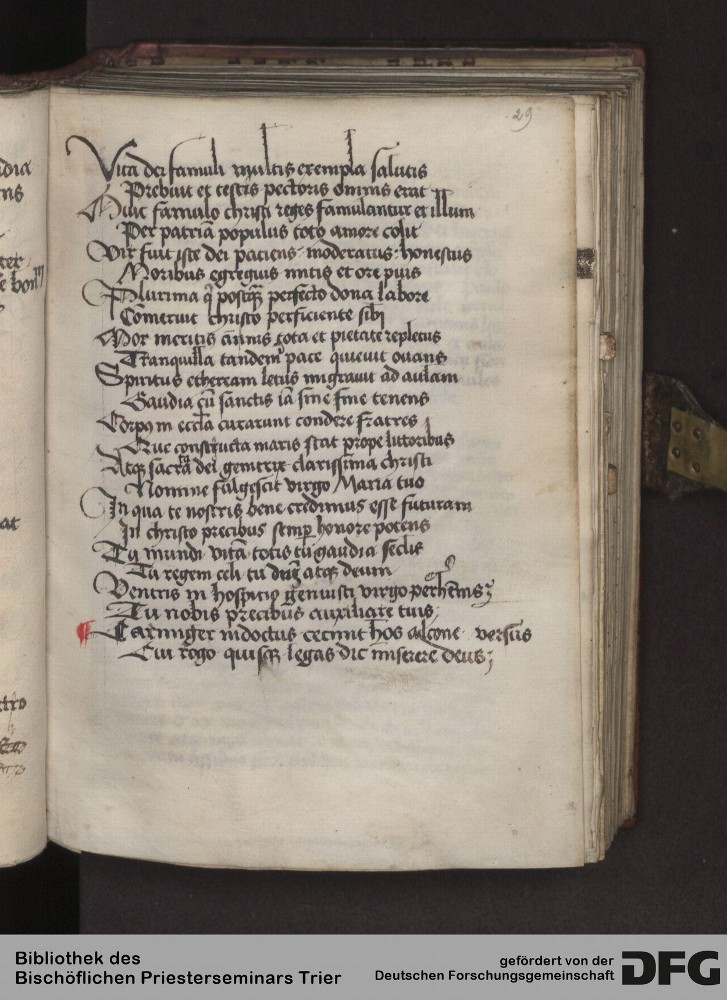 29
Vita dei famuli multis exempla salutis
Prebuit et testis pectoris omnis erat
Huic famulo christi reges famulantur et illum
Per patriā populus toto amore colit
Vir fuit iste dei paciens moderatus honestus
Moribus egregius mitis et ore pius
Plurima q postq perfecto dona labore
Cōmeruit christo perficiente sibi
Mox meritis annis tota et pietate repletus
Tranquilla tandem pace quievit ovans
Spiritus etheream letus migravit ad aulam
Gaudia cū sanctis iā sine fine tenens
Corpus in eccla curarunt condere fratres
Que constructa maris stat prope littoribus
Atq sacra dei genitrix clarissima christi
Nomine fulgescit virgo Maria tuo
In qua te nostris bene credimus esse futuram
In christo precibus semp honore potens
Tu mundi vita totis tu gaudia seclis
Tu regem celi tu atq deum
Ventris in hospitio genuisti virgo perhēnis
Tu nobis precibus auxiliare tuis
Carminger indoctus cecinit hos alcone versus
Cui rogo quisq legas dic miserere deus
dia
ns
ter
e bon
at
Bibliothek des
Bischöflichen Priesterseminars Trier
gefördert von der
Deutschen Forschungsgemeinschaft
DFG